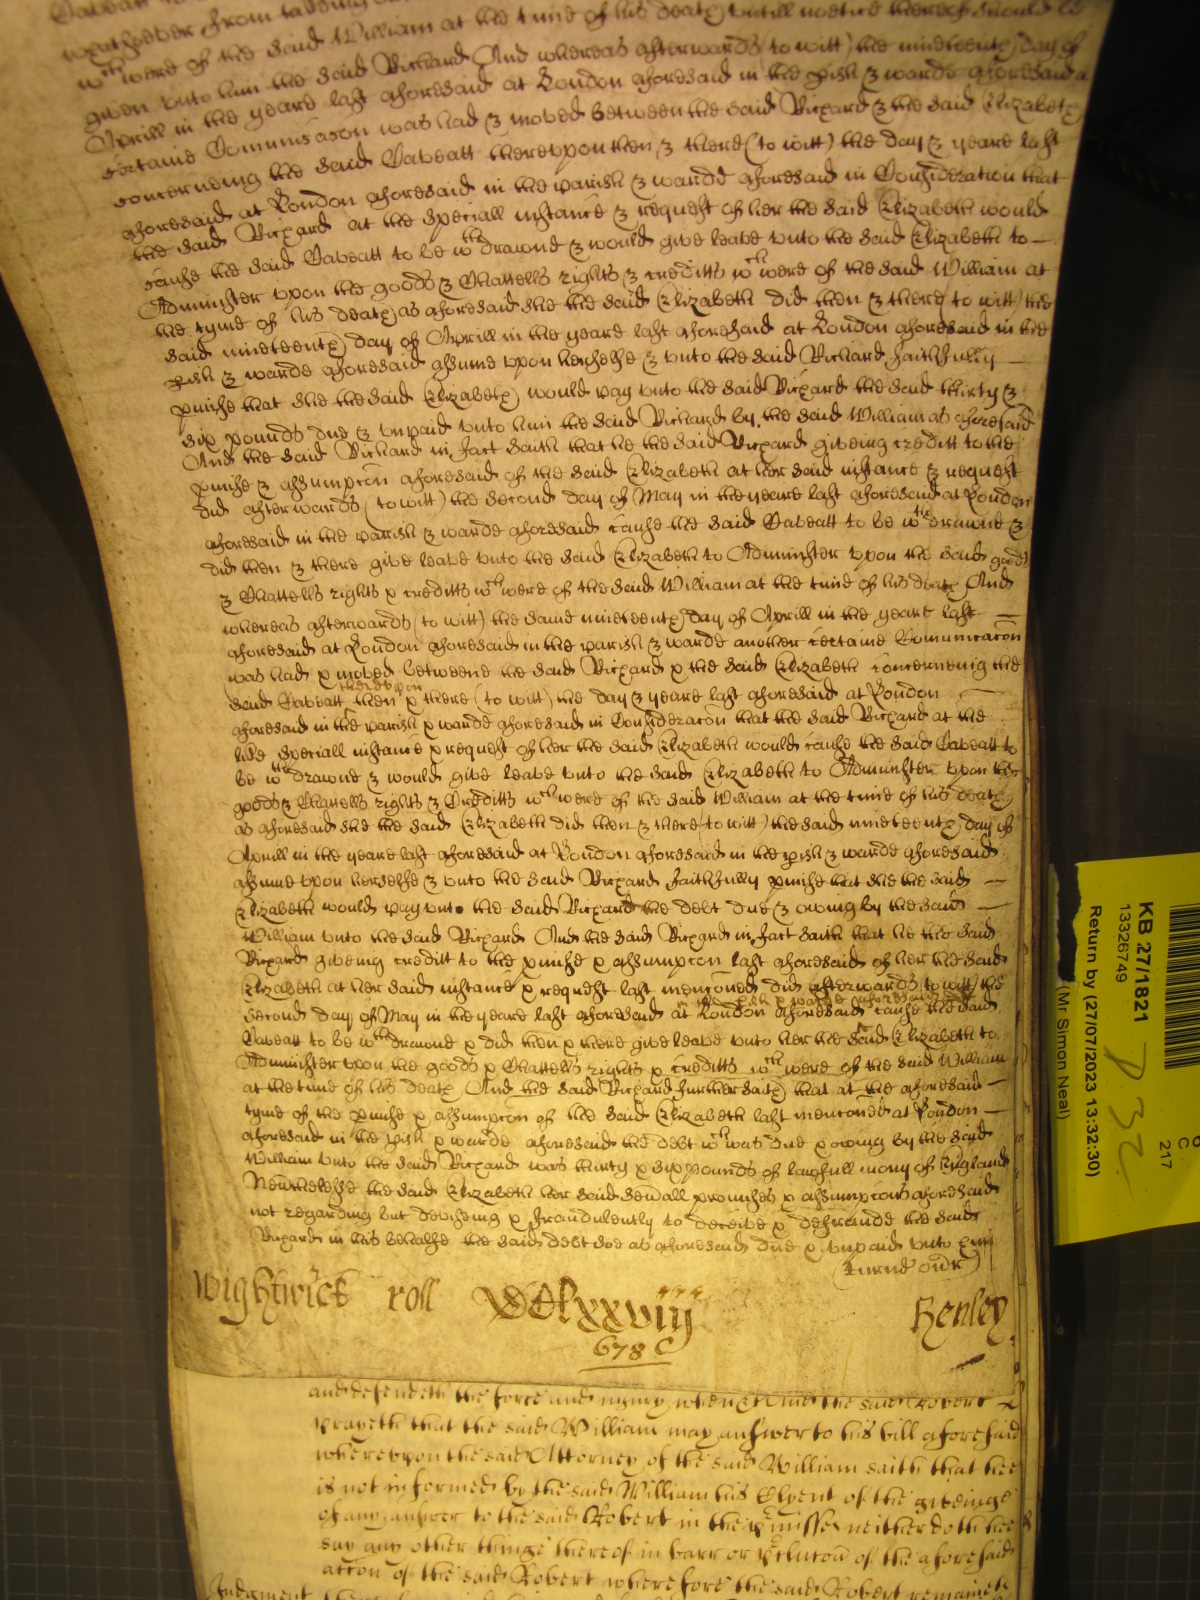 Caveatt
whatsoever from
wch were of the said William at the time of his death untill notice thereof should be
given unto him the said Richard And whereas afterwards (to witt) the nineteenth day of
Aprill in the yeare last aforesaid at London aforesaid in the pish & warde aforesaid a
certaine Comunicacon was had & moved betweene the said Richard & the said Elizabeth
concerneing the said Caveatt thereupon then & there (to witt) the day & yeare last
aforesaid at London aforesaid in the parish & warde aforesaid in Consideration that
the said Richard at the speciall instance & request of her the said Elizabeth would
cause the said Caveatt to be wthdrawne & would give leave unto the said Elizabeth to
Administer upon the goods & Chattells rights & creditts wch were of the said William at
the tyme of his death as aforesaid she the said Elizabeth did then & there (to witt) the
said nineteenth day of Aprill in the yeare last aforesaid at London aforesaid in the
pish & warde aforesaid assume upon herselfe & unto the said Richard faithfully
pmise that she the said Elizabeth would pay unto the said Richard the said thirty &
six pounds due & unpaid unto him the said Richard by the said William as aforesaid
And the said Richard in fact saith that he the said Richard giveing creditt to the
pmise & assumpcon aforesaid of the said Elizabeth at her said instance & request
did afterwards (to witt) the second day of May in the yeare last aforesaid at London
aforesaid in the parish & warde aforesaid cause the said Caveatt to be wthdrawne &
did then & there give leave unto the said Elizabeth to Administer upon the said goods
& Chattells rights & creditts wch were of the said William at the time of his death And
whereas afterwards (to witt) the same nineteenth day of Aprill in the yeare last
aforesaid at London aforesaid in the parish & warde another certaine Comunicacon
was had & moved betweene the said Richard & the said Elizabeth concerneing the
said Caveatt thereupon then & there (to witt) the day & yeare last aforesaid at London
aforesaid in the parish & warde aforesaid in Consideracon that the said Richard at the
like speciall instance & request of her the said Elizabeth would cause the said Caveatt to
be wthdrawne & would give leave unto the said Elizabeth to Administer upon the
goods & Chattells rights & Creditts wch were of the said William at the time of his death
as aforesaid she the said Elizabeth did then & there (to witt) the said nineteenth day of
Aprill in the yeare last aforesaid at London aforesaid in the pish & warde aforesaid
assume upon herselfe & unto the said Richard faithfully pmise that she the said
Elizabeth would pay unto the said Richard the debt due & oweing by the said
William unto the said Richard And the said Richard in fact saith that he the said
Richard giveing creditt to the pmise & assumpcon last aforesaid of her the said
Elizabeth at her said instance & request last mencioned did afterwards (to witt) the
second day of May in the yeare last aforesaid at London in the pish & warde aforesaid aforesaid cause the said
Caveatt to be wthdrawne & did then & there give leave unto her the said Elizabeth to
Administer upon the goods & Chattells rights & creditts wch were of the said William
at the time of his death And the said Richard further saith that at the aforesaid
tyme of the pmise & assumpcon of the said Elizabeth last menconed at London
aforesaid in the pish & warde aforesaid the debt wch was due & oweing by the said
William unto the said Richard was thirty & six pounds of lawfull mony of England
Neverthelesse the said Elizabeth her said severall promises & assumpcons aforesaid
not regarding but deviseing & fraudulently to deceive & defraude the said
Richard in his behalfe the said debt soe as aforesaid due & unpaid unto him
(turne over)
Wightwick roll DClxxviij Henley
678 C
and defendeth the force and injury when &c And the said Robert
prayeth that the said William may answer to his bill aforesaid
whereupon the said Attorney of the said William saith that hee
is not informed by the said William his Clyent of the giveinge
of any answer to the said Robert in the pmisses neither doth hee
say any other thinge thereof in barr or pclucon of the aforesaid
accon of the said Robert wherefore the said Robert remaineth
Judgment
KB 27/1821
13326749
Return by (27/07/2023 13:32:30)
(Mr Simon Neal)
P 32
217